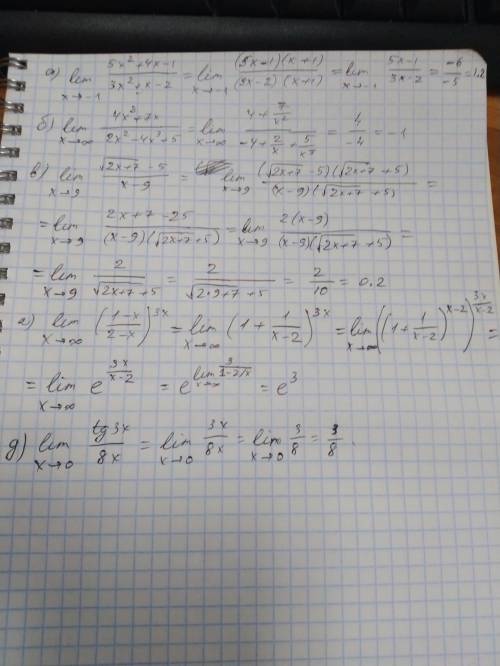 а) lim x→-1 (5x²+4x-1)/(3x²+x-2) = lim x→-1 ((5x-1)(x+1))/((3x-2)(x+1)) = lim x→-1 (5x-1)/(3x-2) = -6/-5 = 1.2
б) lim x→∞ (4x³+7x)/(2x²-4x³+5) = lim x→∞ (4+7/x²)/(-4+2/x+5/x³) = 4/-4 = -1
в) lim x→9 (√(2x+7)-5)/(x-9) = lim x→9 ((√(2x+7)-5)(√(2x+7)+5))/((x-9)(√(2x+7)+5)) =
= lim x→9 (2x+7-25)/((x-9)(√(2x+7)+5)) = lim x→9 2(x-9)/((x-9)(√(2x+7)+5)) =
= lim x→9 2/(√(2x+7)+5) = 2/(√(2·9+7)+5) = 2/10 = 0.2
г) lim x→∞ ((1-x)/(2-x))^(3x) = lim x→∞ (1+1/(x-2))^(3x) = lim x→∞ ((1+1/(x-2))^(x-2))^(3x/(x-2)) =
= lim x→∞ e^(3x/(x-2)) = e^(lim x→∞ 3/(1-2/x)) = e³
д) lim x→0 tg3x/8x = lim x→0 3x/8x = lim x→0 3/8 = 3/8.